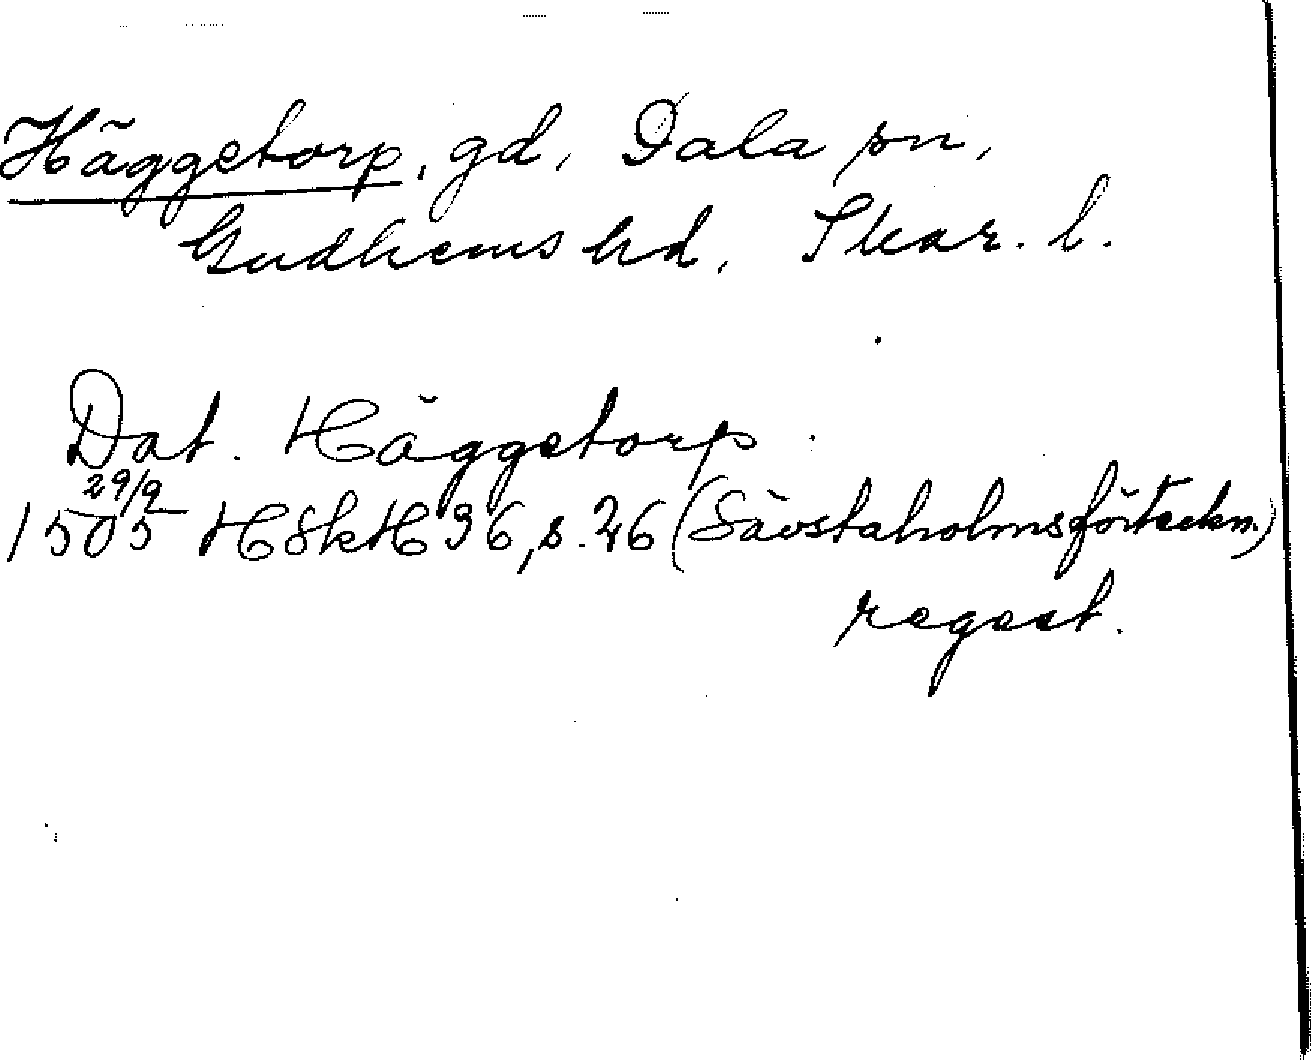 Häggetorp, gd, Dala sn,
Gudhems hd, Skar. l.
Dat. Häggetorp
29/9
1505 HSkH 36, s. 26 (Sävstaholmsförteckn.)
regest.